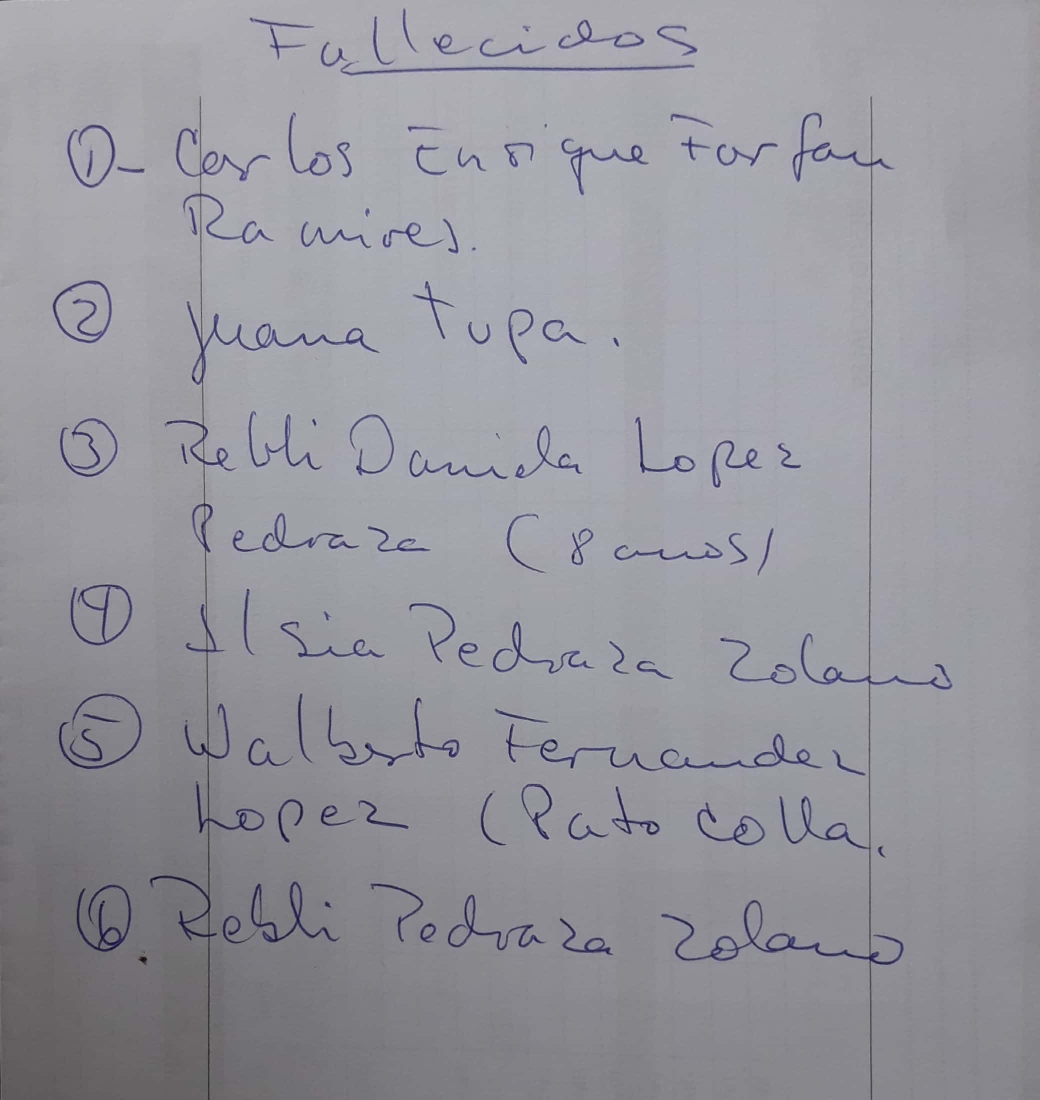 Fallecidos
①- Carlos Enrique Farfan
Ramires.
② Juana Tupa.
③ Rebli Daniela Lopez
Pedraza (8 anos)
④ Ilsia Pedraza Zolano
⑤ Walberto Fernandez
Lopez (Pato colla.
⑥ Rebli Pedraza Zolano